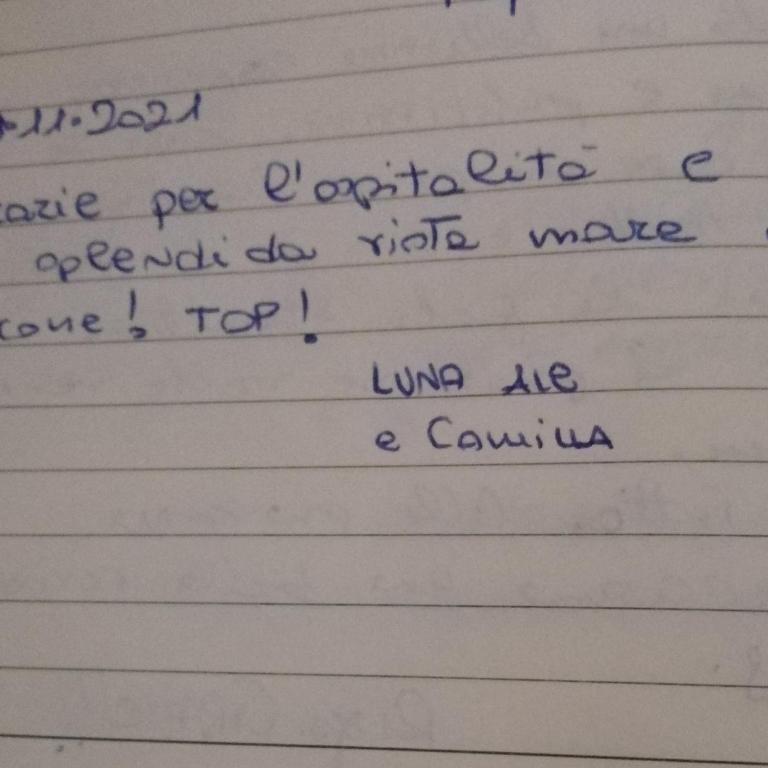 .11.2021
razie per l'ospitalità e
splendida vista mare
cone! TOP!
LUNA ALE
e CAMILLA